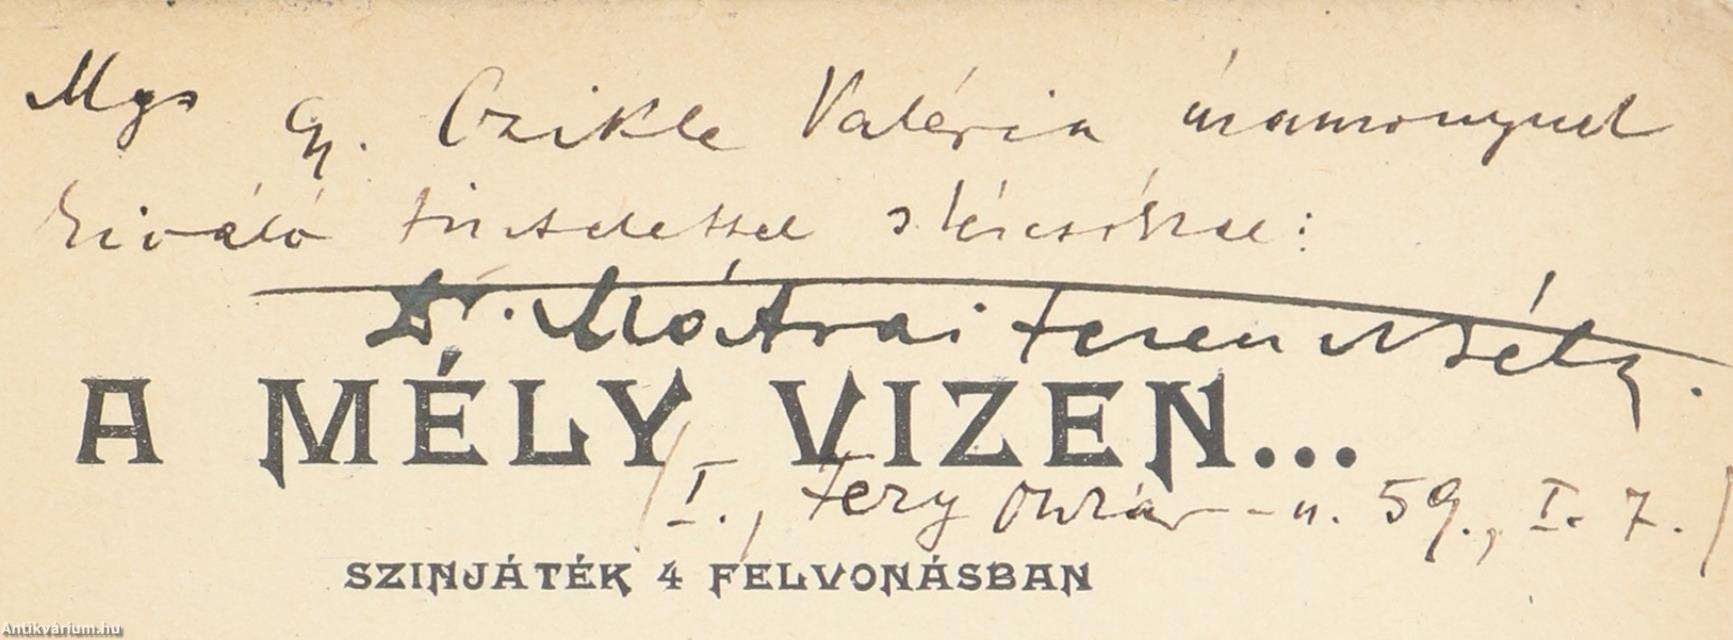 Mgs G. Czikle Valéria úramonynul
kiváló tisztelettel s kézcsókkal:
Dr. Mátrai Ferencz Béla.
A MÉLY VIZEN...
(I., Fery Oszkár-u. 59., I. 7.)
SZINJÁTÉK 4 FELVONÁSBAN
Antikvárium.hu